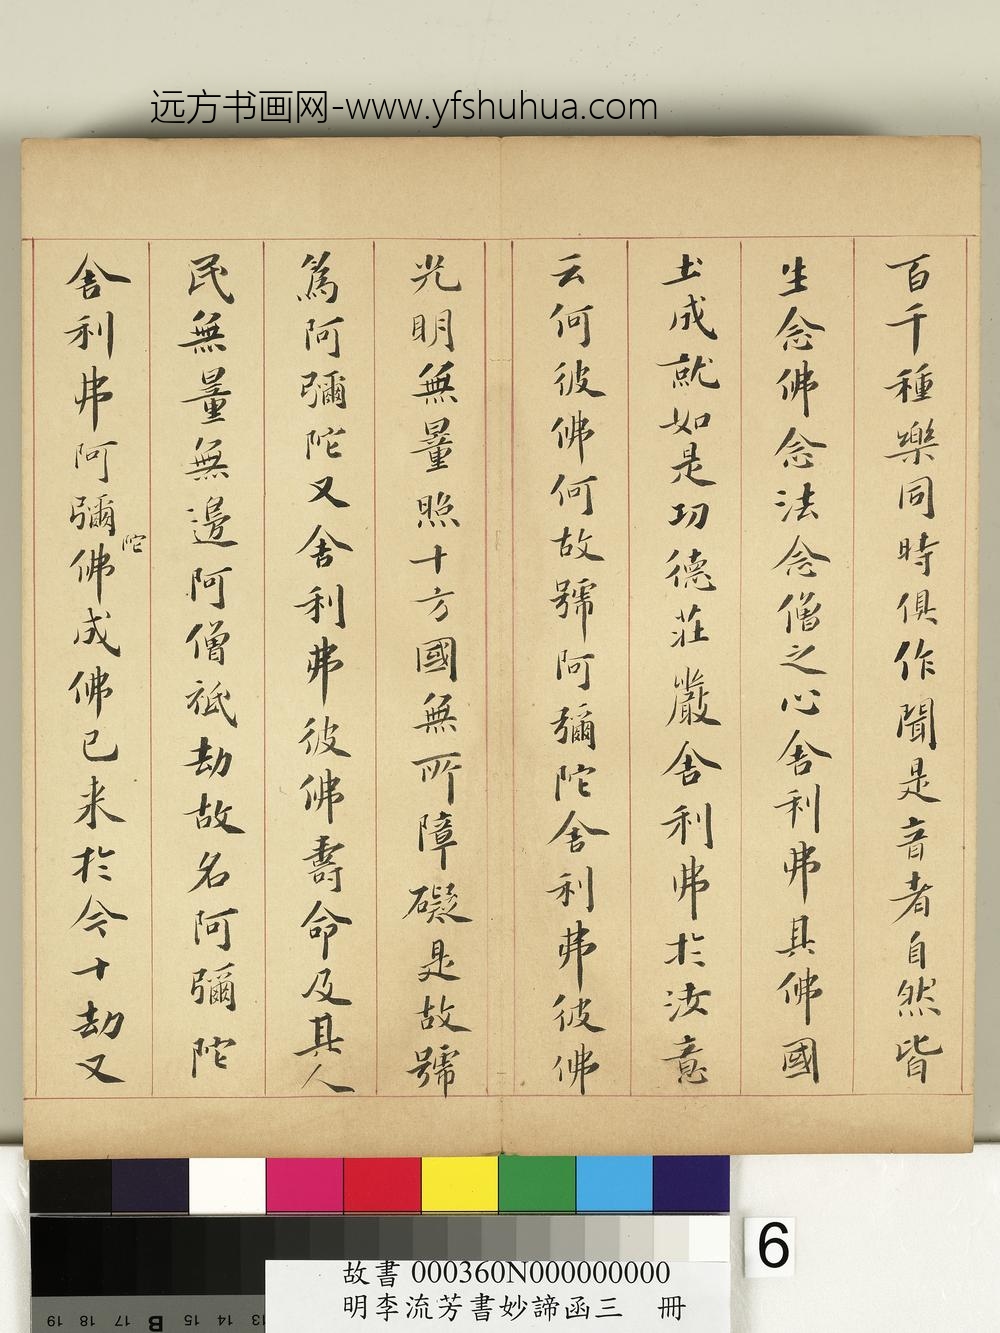 远方书画网-www.yfshuhua.com
百千種樂同時俱作聞是音者自然皆
生念佛念法念僧之心舍利弗具佛國
土成就如是功德莊嚴舍利弗於汝意
云何彼佛何故號阿彌陀舍利弗彼佛
光明無量照十方國無所障礙是故號
為阿彌陀又舍利弗彼佛壽命及其人
民無量無邊阿僧祇劫故名阿彌陀
舍利弗阿彌陀佛成佛已来於今十劫又
6
故書 000360N000000000
明李流芳書妙諦函三 冊
19 18 17 B 15 14 13